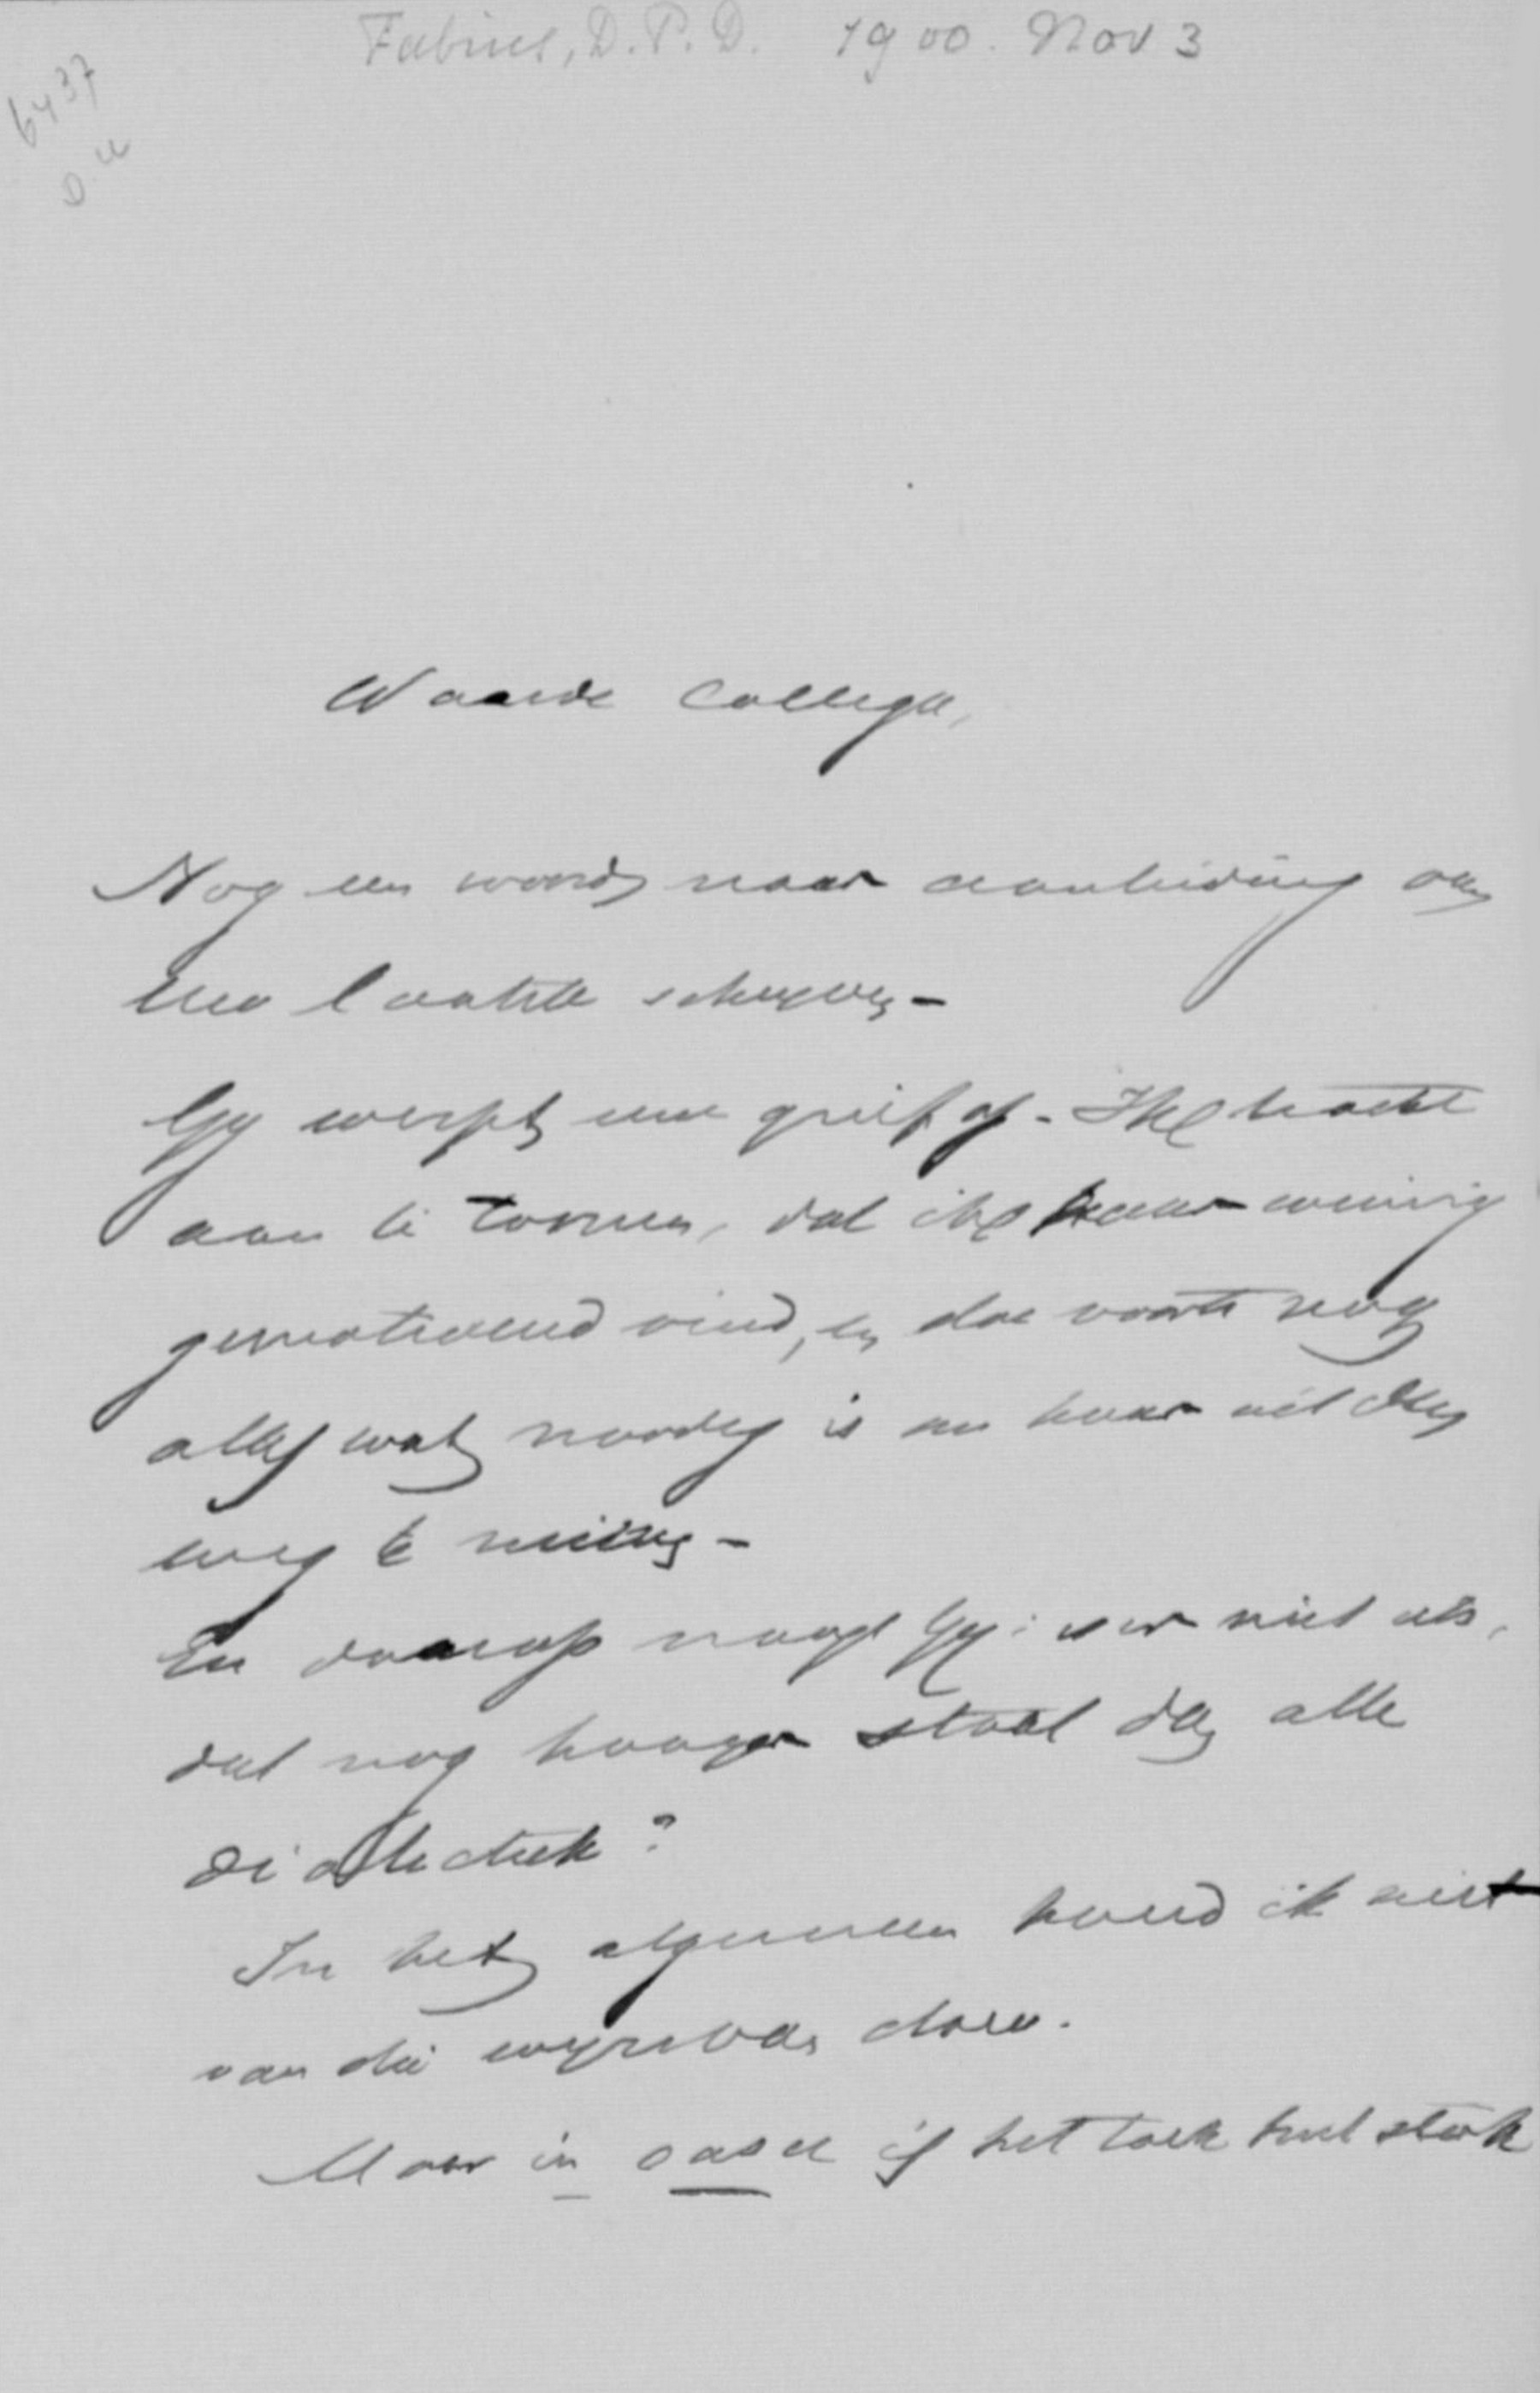 Fabius, D.P.D. 1900. Nov 3
6437
Waarde Collega,
Nog een woord naar aanleiding van
Uw laatste schrijven -
Gij werpt eene grief op. Ik trachtte
aan te toonen, dat ik haar weinig
gemotiveerd vind, en doe voorts nog
alles wat noodig is om haar uit den
weg te ruimen -
En daarop vraagt Gij: is er niet iets,
dat nog hooger staat dan alle
dialectiek?
In het algemeen houd ik niet
van die wijze van doen.
Maar in casu is het toch heel sterk